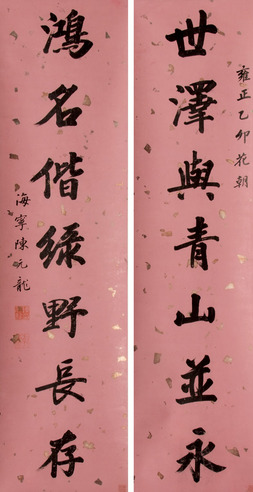 雍正乙卯花朝
世澤與青山並永
鴻名偕綠野長存
海寧陳元龍